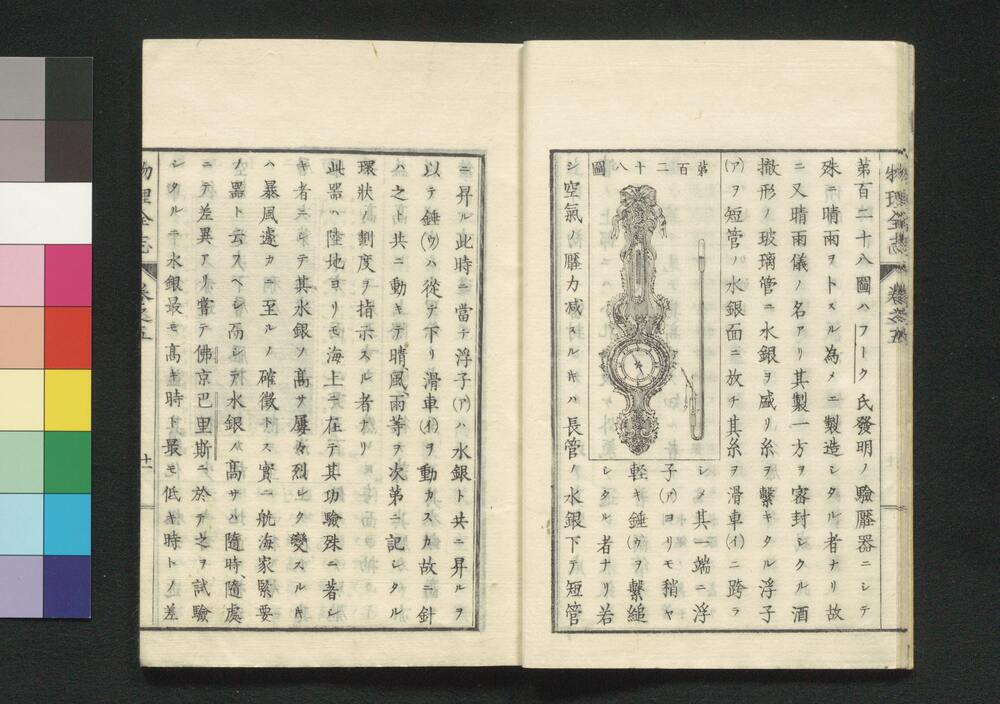 物理全志 卷之五
第百二十八圖ハフーク氏發明ノ驗壓器ニシテ
殊ニ晴雨ヲトスル為メニ製造シタル者ナリ故
ニ又晴雨儀ノ名アリ其製一方ヲ密封シクル酒
撤形ノ玻璃管ニ水銀ヲ盛リ糸ヲ繋キタル浮子
(ア)ヲ短管ノ水銀面ニ放チ其糸ヲ滑車(イ)ニ跨ラ
第百二十八圖
シメ其一端ニ浮
子(ア)ヨリモ稍ヤ
輕キ錘(ウ)ヲ繋縋
シタル者ナリ若
シ空氣ノ壓力减スルキハ長管ノ水銀下テ短管
ニ昇ル此時ニ當テ浮子(ア)ハ水銀ト共ニ昇ルヲ
以テ錘(ウ)ハ從テ下リ滑車(イ)ヲ動カスカ故ニ針
ハ之ト共ニ動キテ晴、風、雨等ヲ次第ニ記シタル
環狀ノ劃度ヲ指示スル者ナリ
此器ハ陸地ヨリモ海上ニ在テ其功驗殊ニ著シ
キ者ニシテ其水銀ノ高サ屢々烈シク變スルキ
ハ暴風遽カニ至ルノ確徴トス實ニ航海家緊要
ノ器ト云フヘシ而シテ水銀ノ高サハ隨時、隨處
ニテ差異アリ嘗テ佛京巴里斯ニ於テ之ヲ試驗
シタルニ水銀最モ高キ時ト最モ低キ時トノ差
物理全志 卷之五 十一